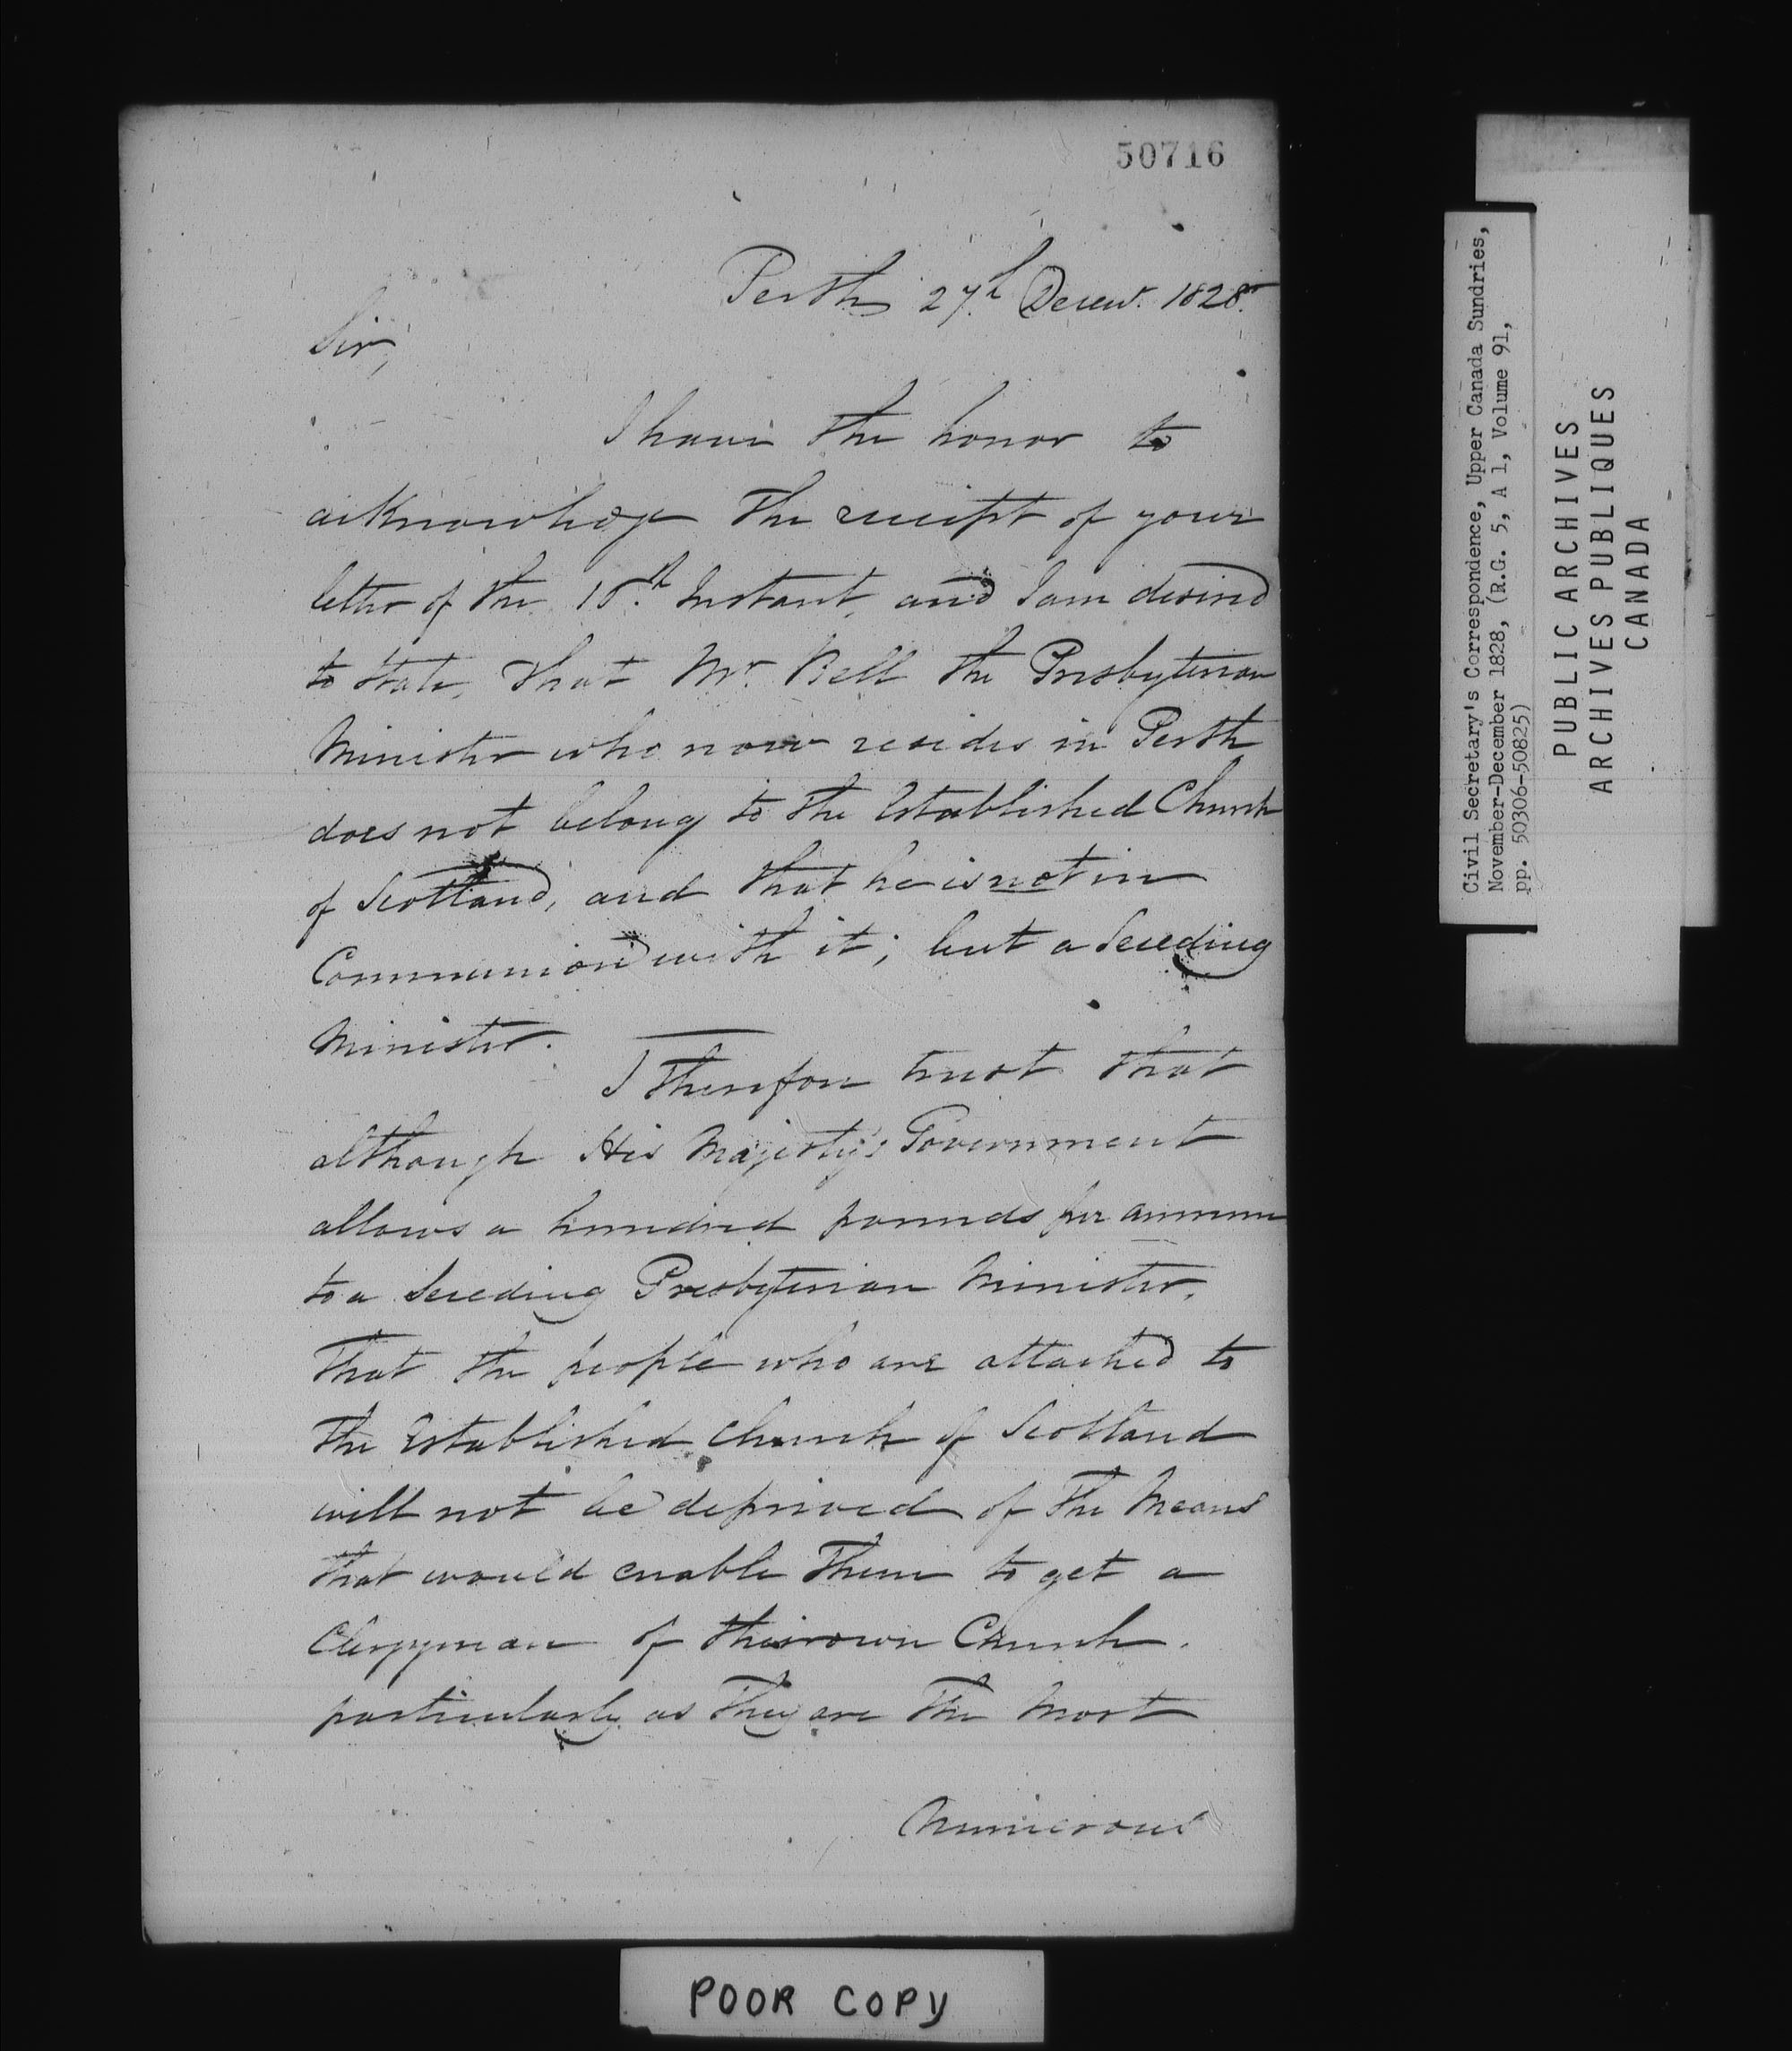 50716
Perth 27th Decemr. 1828.
Sir,
I have the honor to
acknowledge the receipt of your
letter of the 15th Instant, and I am desired
to state, that Mr. Bell the Presbyterian
Minister who now resides in Perth
does not belong to the Established Church
of Scotland, and that he is not in
Communion with it; but a Seceding
Minister.
I therefore trust that
although His Majesty's Government
allows a hundred pounds per annum
to a Seceding Presbyterian Minister,
that the people who are attached to
the Established Church of Scotland
will not be deprived of the Means
that would enable them to get a
Clergyman of their own Church.
particularly as they are the most
Numerous
POOR COPY
Civil Secretary's Correspondence, Upper Canada Sundries,
November-December 1828, (R.G. 5, A 1, Volume 91,
pp. 50306-50825)
PUBLIC ARCHIVES
ARCHIVES PUBLIQUES
CANADA